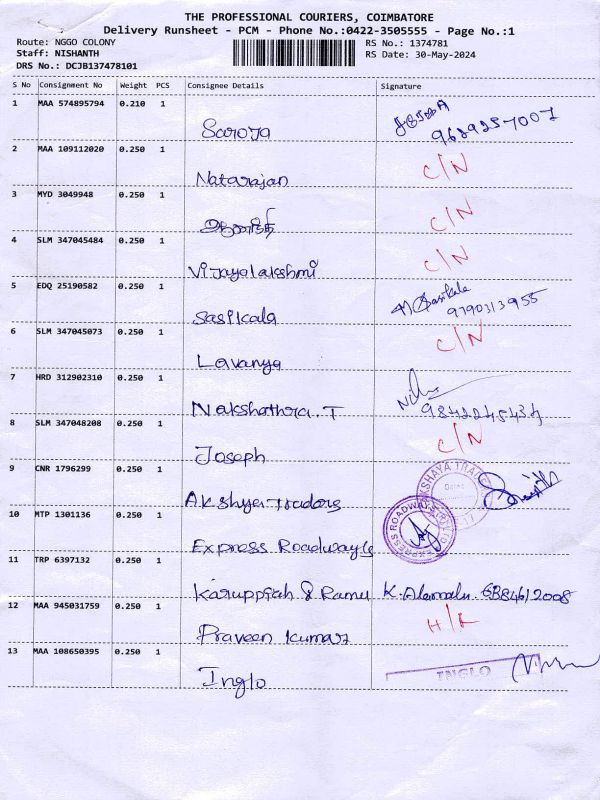 THE PROFESSIONAL COURIERS, COIMBATORE
Delivery Runsheet - PCM - Phone No.:0422-3505555 - Page No.:1
Route: NGGO COLONY
RS No.: 1374781
Staff: NISHANTH
RS Date: 30-May-2024
DRS No.: DCJB137478101
S No Consignment No Weight PCS Consignee Details Signature
1 MAA 574895794 0.210 1
Saroja
9629257007
2 MAA 109112020 0.250 1 C/N
Natarajan
3 MYD 3049948 0.250 1 C/N
ஆனந்தி
4 SLM 347045484 0.250 1 C/N
Vijayalakshmi
5 EDQ 25190582 0.250 1 Sasikala
Sasikala 9790313955
6 SLM 347045073 0.250 1 C/N
Lavanya
7 HRD 312902310 0.250 1
Nakshathra.T 9842245434
8 SLM 347048208 0.250 1 C/N
Joseph
9 CNR 1796299 0.250 1 AKSHAYA TRADE
Akshya Traders
10 MTP 1301136 0.250 1 EXPRESS ROADWAYS
Express Roadways
11 TRP 6397132 0.250 1
Karuppiah & Ramu
12 MAA 945031759 0.250 1 H/L
Praveen Kumar
13 MAA 108650395 0.250 1 INGLO
Inglo